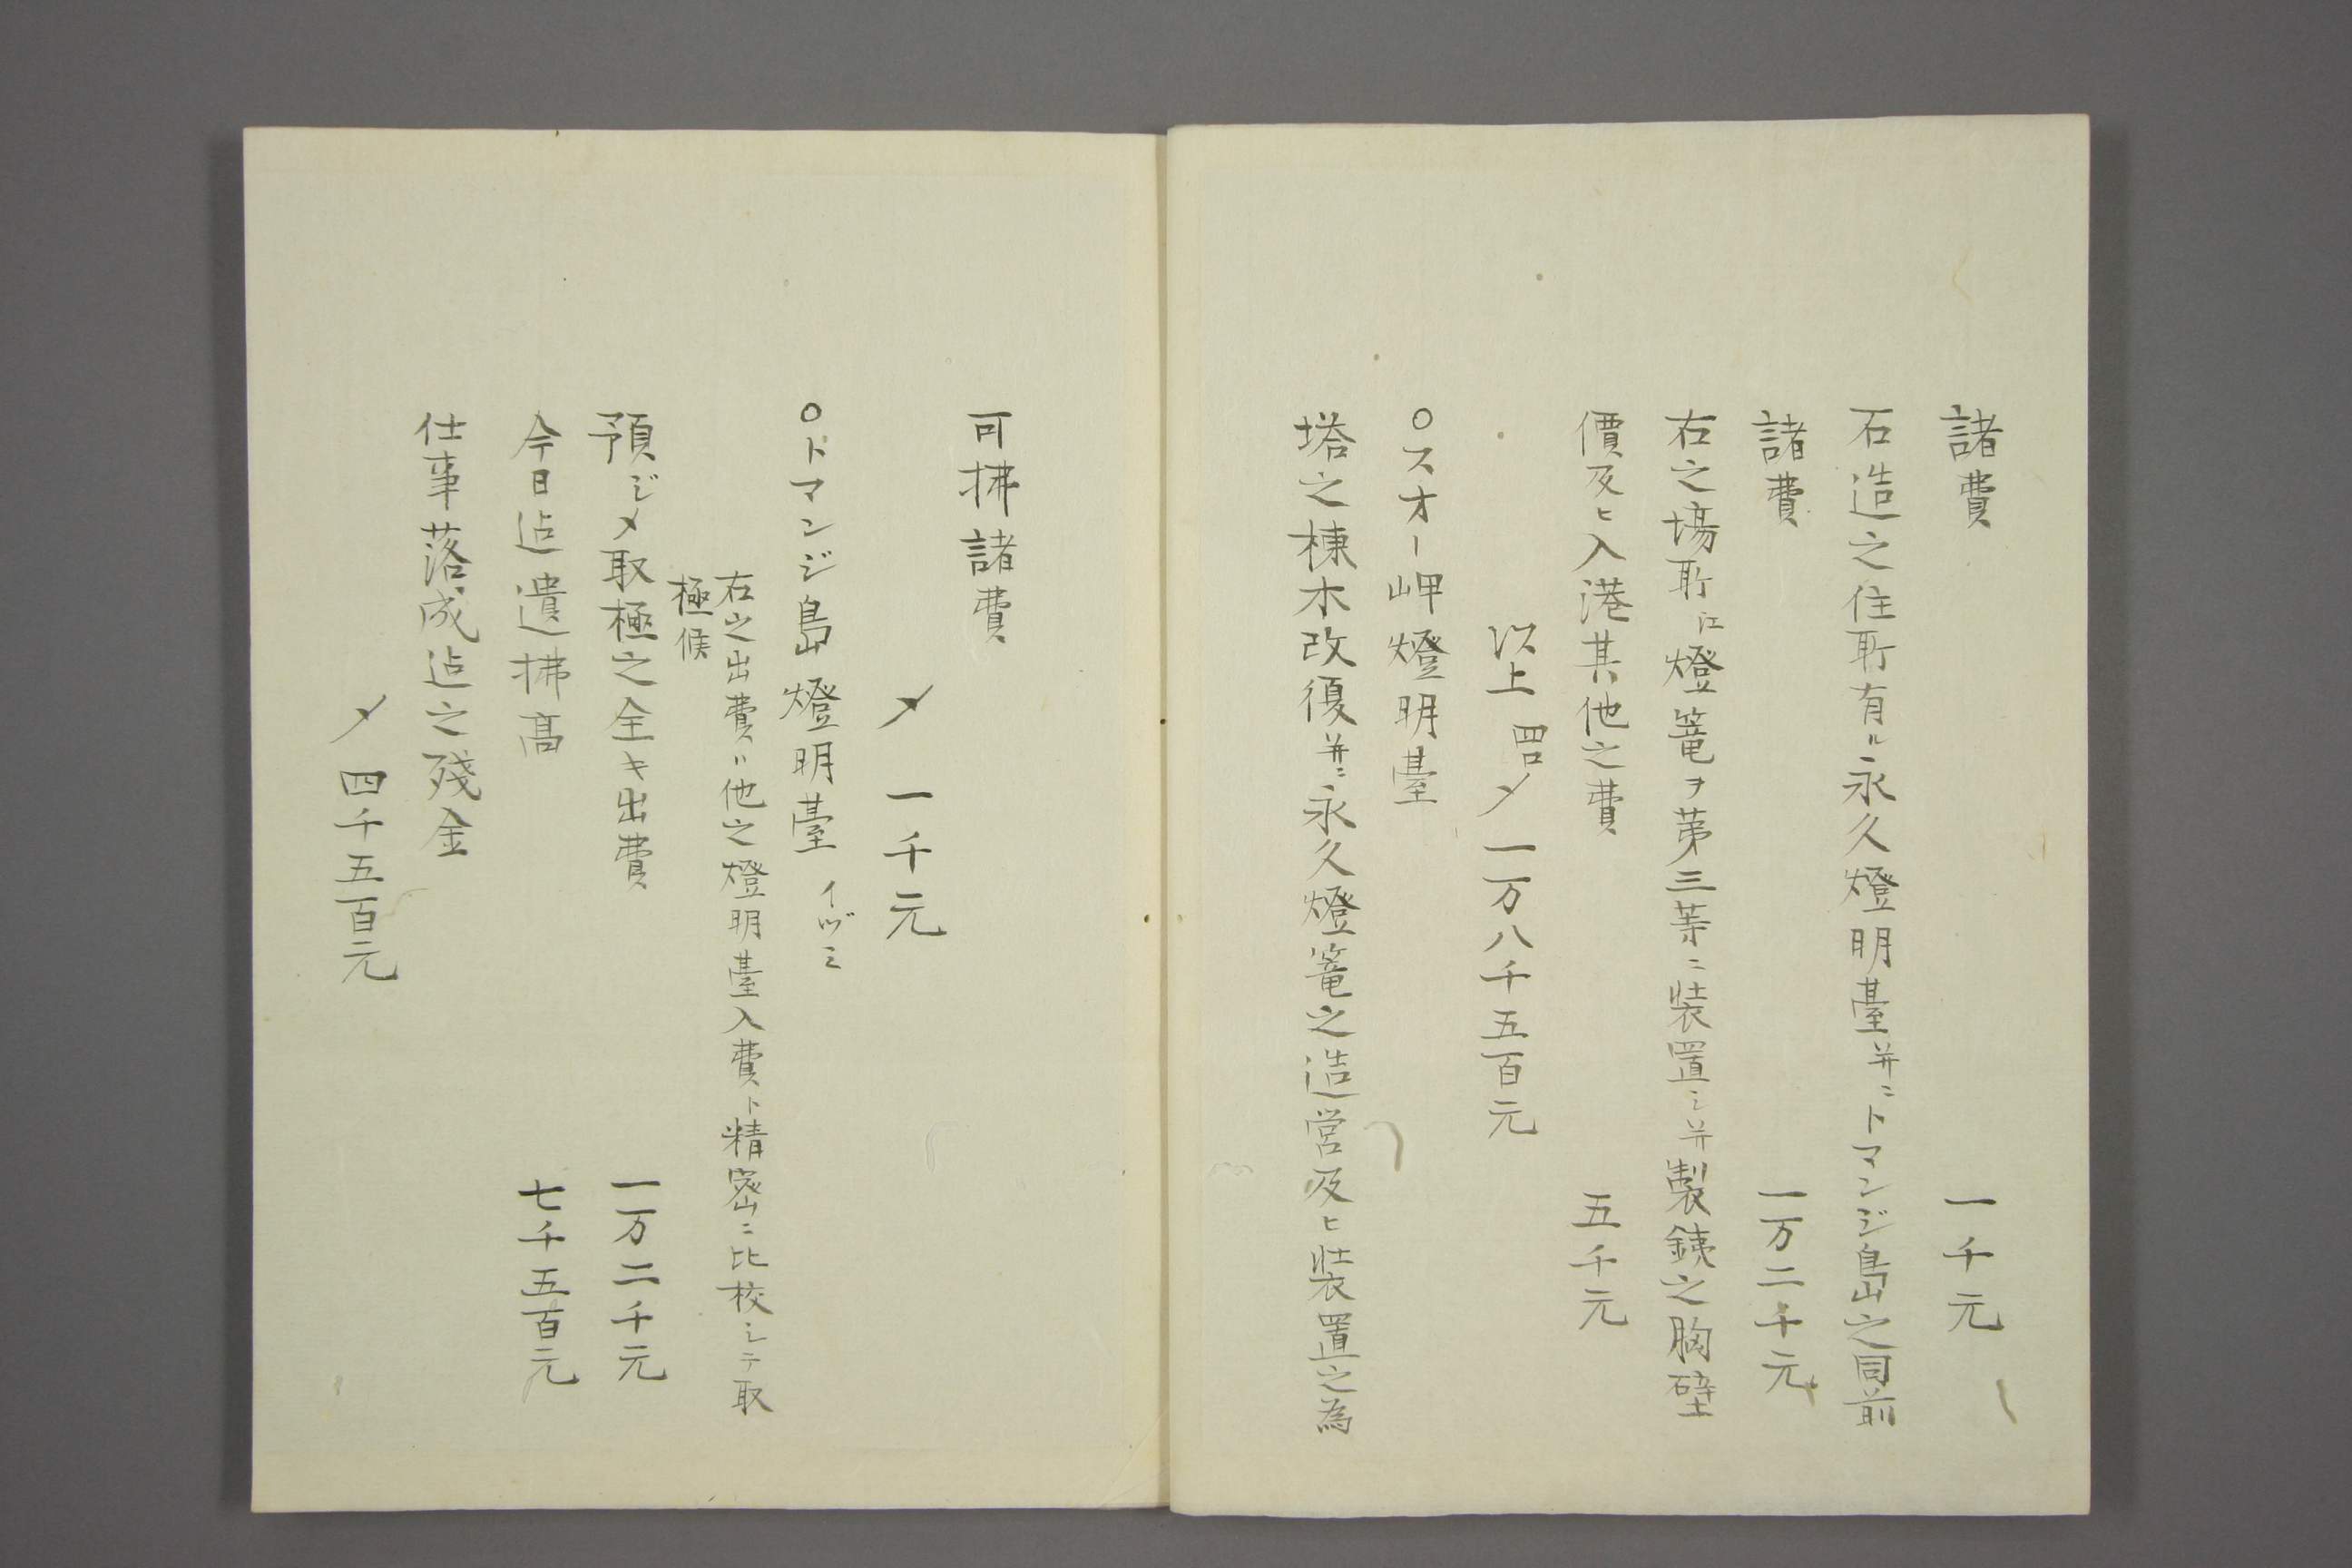 諸費　一千元
石造之住所有ル永久燈明臺并ニトマンジ島之同前
諸費　一万二千元
右之場所江燈篭ヲ苐三等ニ装置シ并製銕之胸壁
價及ヒ入港其他之費　五千元
以上　四口〆一万八千五百元
○スオー岬燈明臺
塔之棟木改復并ニ永久燈篭之造営及ヒ装置之為
可拂諸費
〆　一千元
○トマンジ島燈明臺　イヅミ
右之出費ハ他之燈明臺入費ト精密ニ比校シテ取
極候
預ジメ取極之全キ出費　一万二千元
今日迠遣拂髙　七千五百元
仕事落成迠之殘金
〆　四千五百元